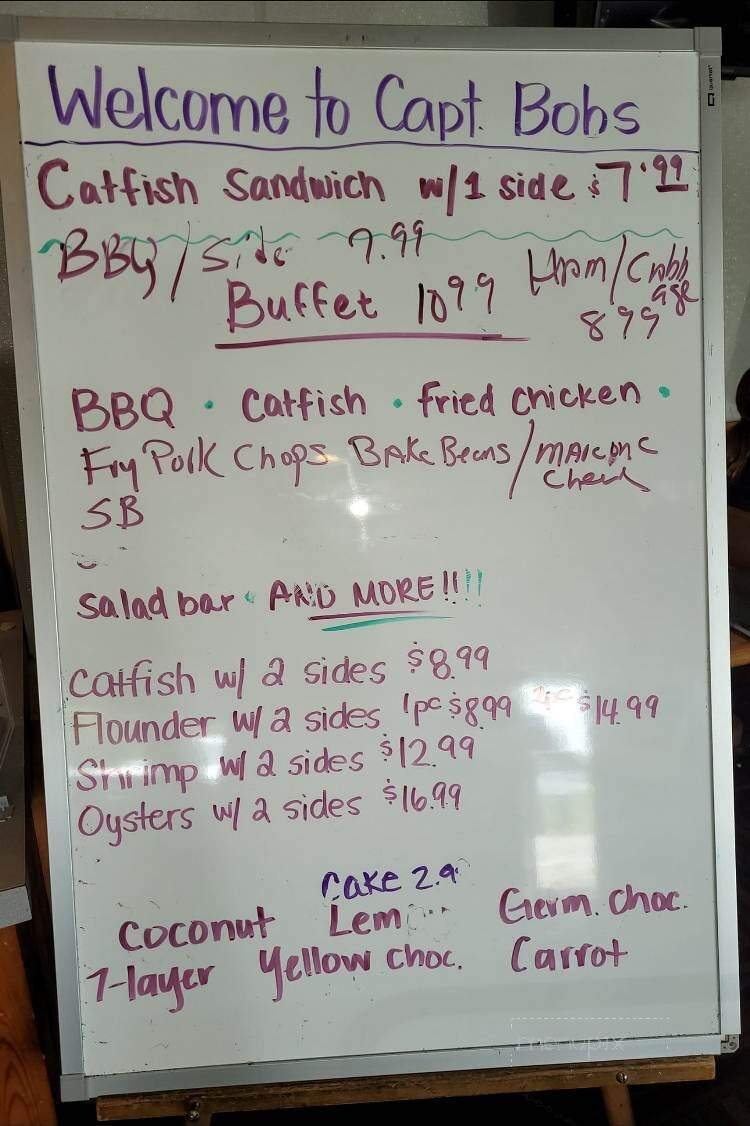 Welcome to Capt. Bobs
Catfish Sandwich w/1 side $7.99
BBQ/Side 7.99
Ham/Cabbage
899
Buffet 1099
BBQ • Catfish • Fried Chicken •
Fry Pork Chops BAKe Beans/
SB
Salad bar • AND MORE!!!!
Catfish w/ 2 sides $8.99
Flounder w/ 2 sides 1pc $8.99 2pc $14.99
Shrimp w/ 2 sides $12.99
Oysters w/ 2 sides $16.99
Cake 2.9
Coconut Lem Germ. Choc.
7-layer Yellow choc. Carrot
Quartet
menupix